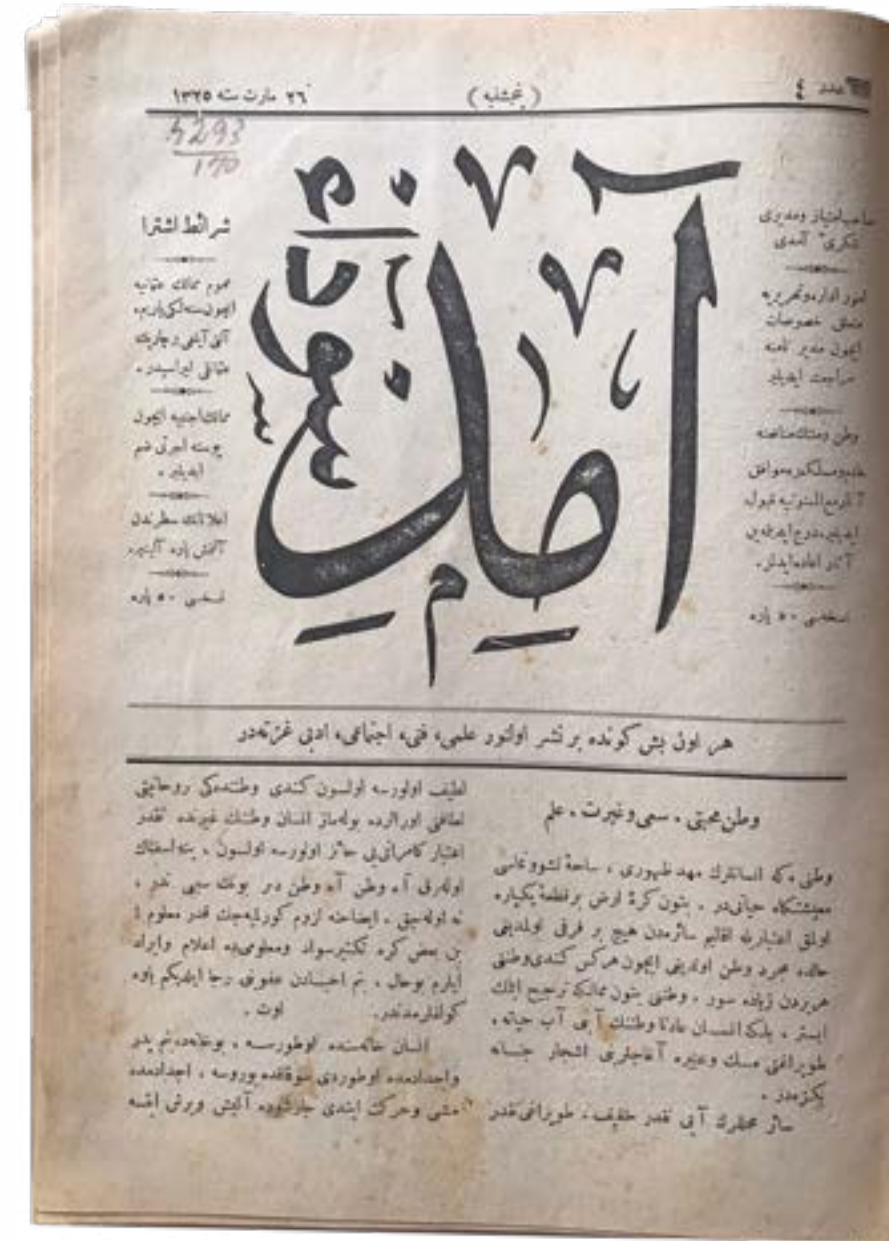 عدد ٤
( پنجشنبه )
٢٦ مارت سنه ١٣٢٥
5293
170
صاحب امتیاز و مدیری
شکری آمدی
امور اداره و تحریریه
متعلق خصوصات
ایچون مدیر نامنه
مراجعت ایدیلیر
وطن و ملتك منافعنه
خادم و مسلكمزه موافق
آثار مع الممنونیه قبول
ایدیلیر، درج ایدیله‌ین
آثار اعاده ایدلز.
نسخه‌سی ٥٠ پاره
شرائط اشترا
عموم ممالك عثمانیه
ایچون سنه‌لكی یارم،
آلتی آیلغی ر چاریك
عثمانلی لیراسیدر.
ممالك اجنبیه ایچون
پوسته اجرتی ضم
ایدیلیر.
اعلاناتك سطرندن
آلتمش پاره آلینیر.
نسخسی ٥٠ پاره
هر اون بش كونده بر نشر اولنور علمی، فنی، اجتماعی، ادبی غزته‌در
وطن محبتی. سعی و غیرت. علم
وطن، كه انسانلرك مهد ظهوری، ساحۀ نشوونماسی
معیشتكاه حیاتی‌در. بتون كرۀ ارض بر قطعۀ یكپاره
اولمق اعتباریله اقلیم سائرەدن هیچ بر فرقی اولمدیغی
حالده مجرد وطن اولدیغی ایچون هركس كندی وطننی
هر یردن زیاده سور. وطننی بتون ممالكه ترجیح ایتمك
ایستر. بلكه انسان عادتا وطننك آبی آب حیاته،
طوپراغنی مسك و عنبره آغاجلرینی اشجار جنانه
بكزه‌در.
سائر محللرك آبی نقدر خفیف، طوپراغی نقدر
لطیف اولورسه اولسون كندی وطننده‌كی روحانیتی
لطافتی اورالرده بوله‌ماز انسان وطننك غیرنده نقدر
اعتبار كامرانی‌یی حائز اولورسه اولسون، ینه اسفناك
اوله‌رق آه وطن آه وطن دیر بونك سببی ندر،
نه اوله‌جق، ایضاحنه لزوم كورلیه‌جك قدر معلوم!
بن بعض كره تكثیر سواد و معلومی‌ده اعلام و ایراد
ایلرم بو حال، بنم احبادن عفونی رجا ایتدیكم یاوه
كولقلرمدندر. اوت.
انسان خانه‌سنده اوطورسه، بو خانه‌ده بنم پدر
و اجدادمده اوطوردی سوقاقده یوروسه، اجدادمده
مشی و حركت ایتدی چارشوده آلیش ویریش ایتسه